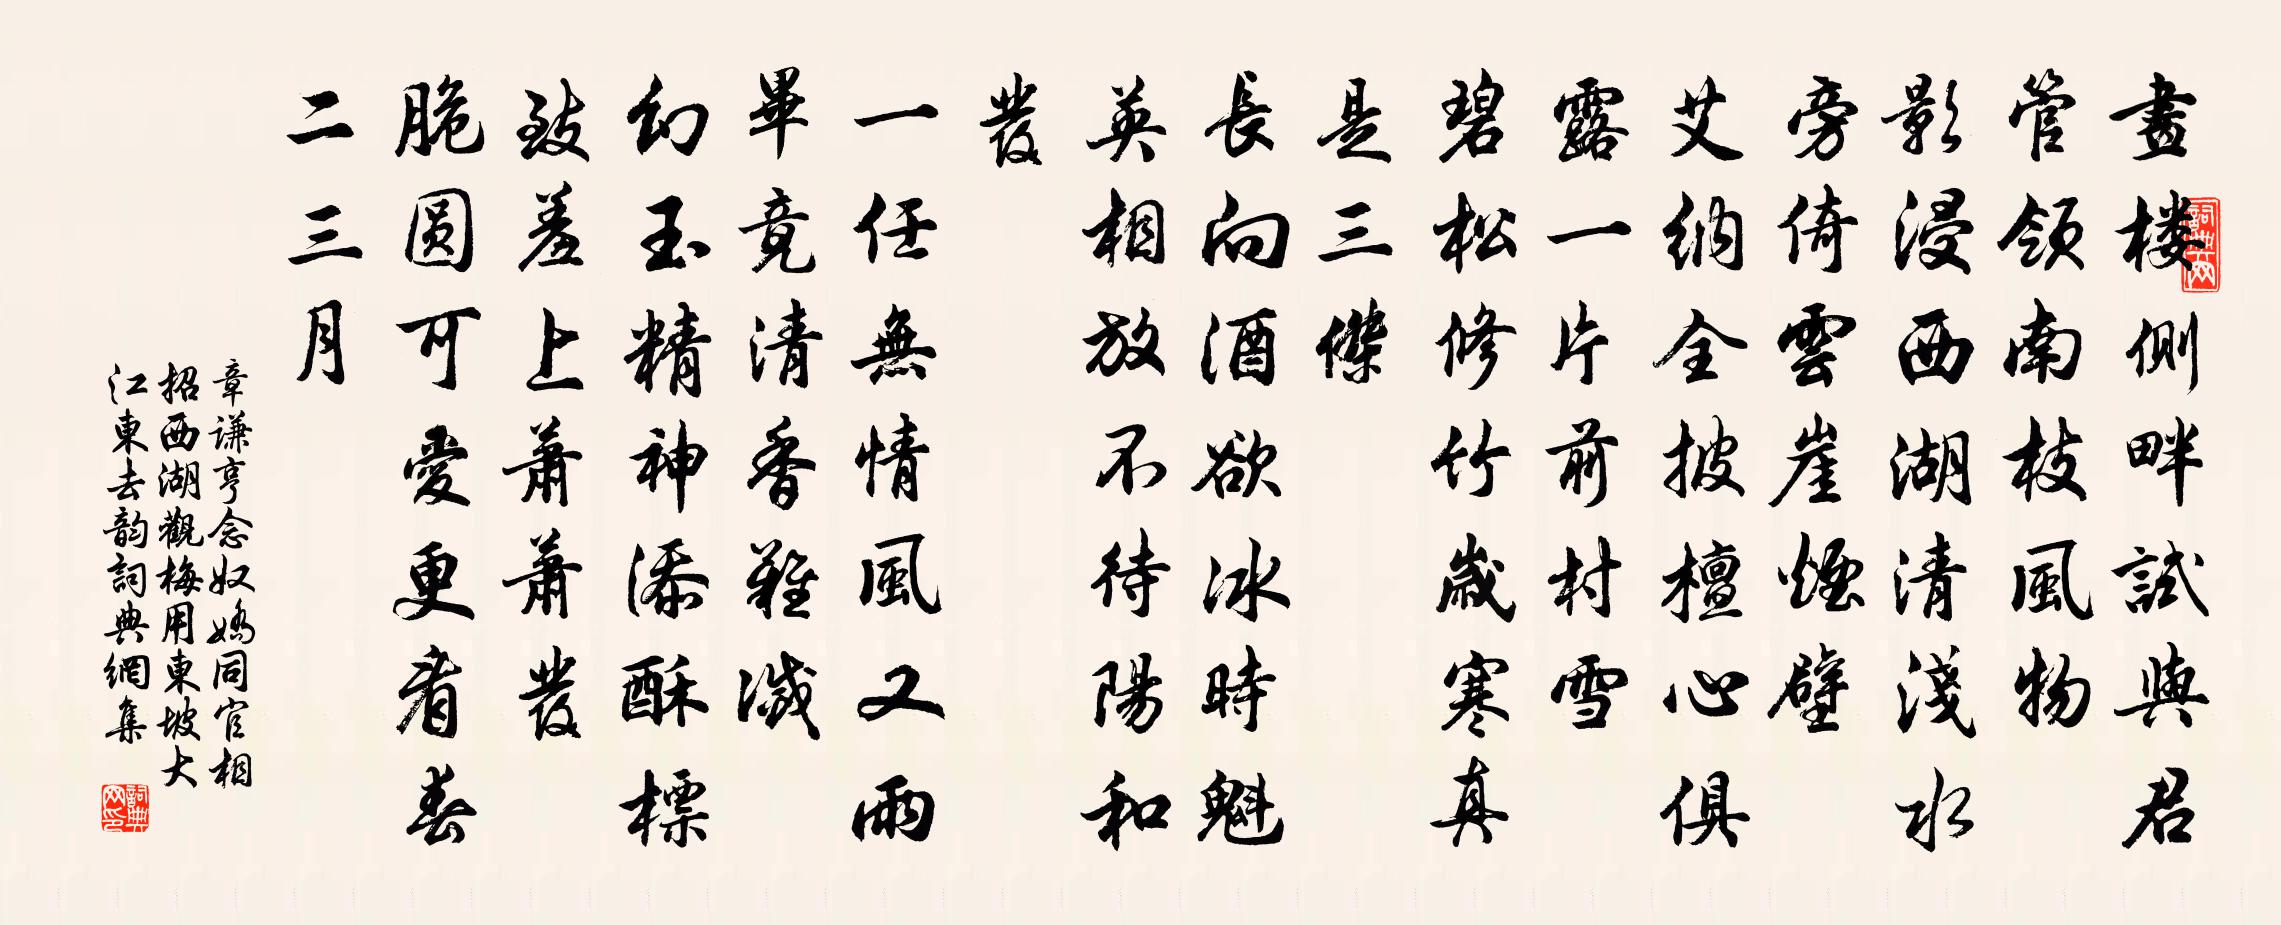 畫楼側畔試與君
管領南枝風物
影浸西湖清淺水
旁倚雲崖煙壁
艾纳全披檀心俱
露一片前村雪
碧松修竹歲寒真
是三傑
長向酒欲冰時魁
英相放不待陽和
發
一任無情風又雨
畢竟清香難滅
幻玉精神添酥標
致羞上蕭蕭發
脆圆可愛更看春
二三月
章谦亨念奴嬌同官相
招西湖觀梅用東坡大
江東去韵詞典網集
詞典网
詞典网印